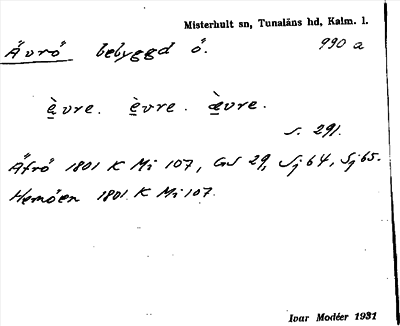 Misterhult sn, Tunaläns hd, Kalm. l.
Ävrö bebyggd ö. 990 a
è̲vre. è̲vre. æ̲̀vre.
s. 291.
Äfrö 1801 K Mi 107, GS 29, Sj 64, Sj 65.
Hemöen 1801 K Mi 107.
Ivar Modéer 1931